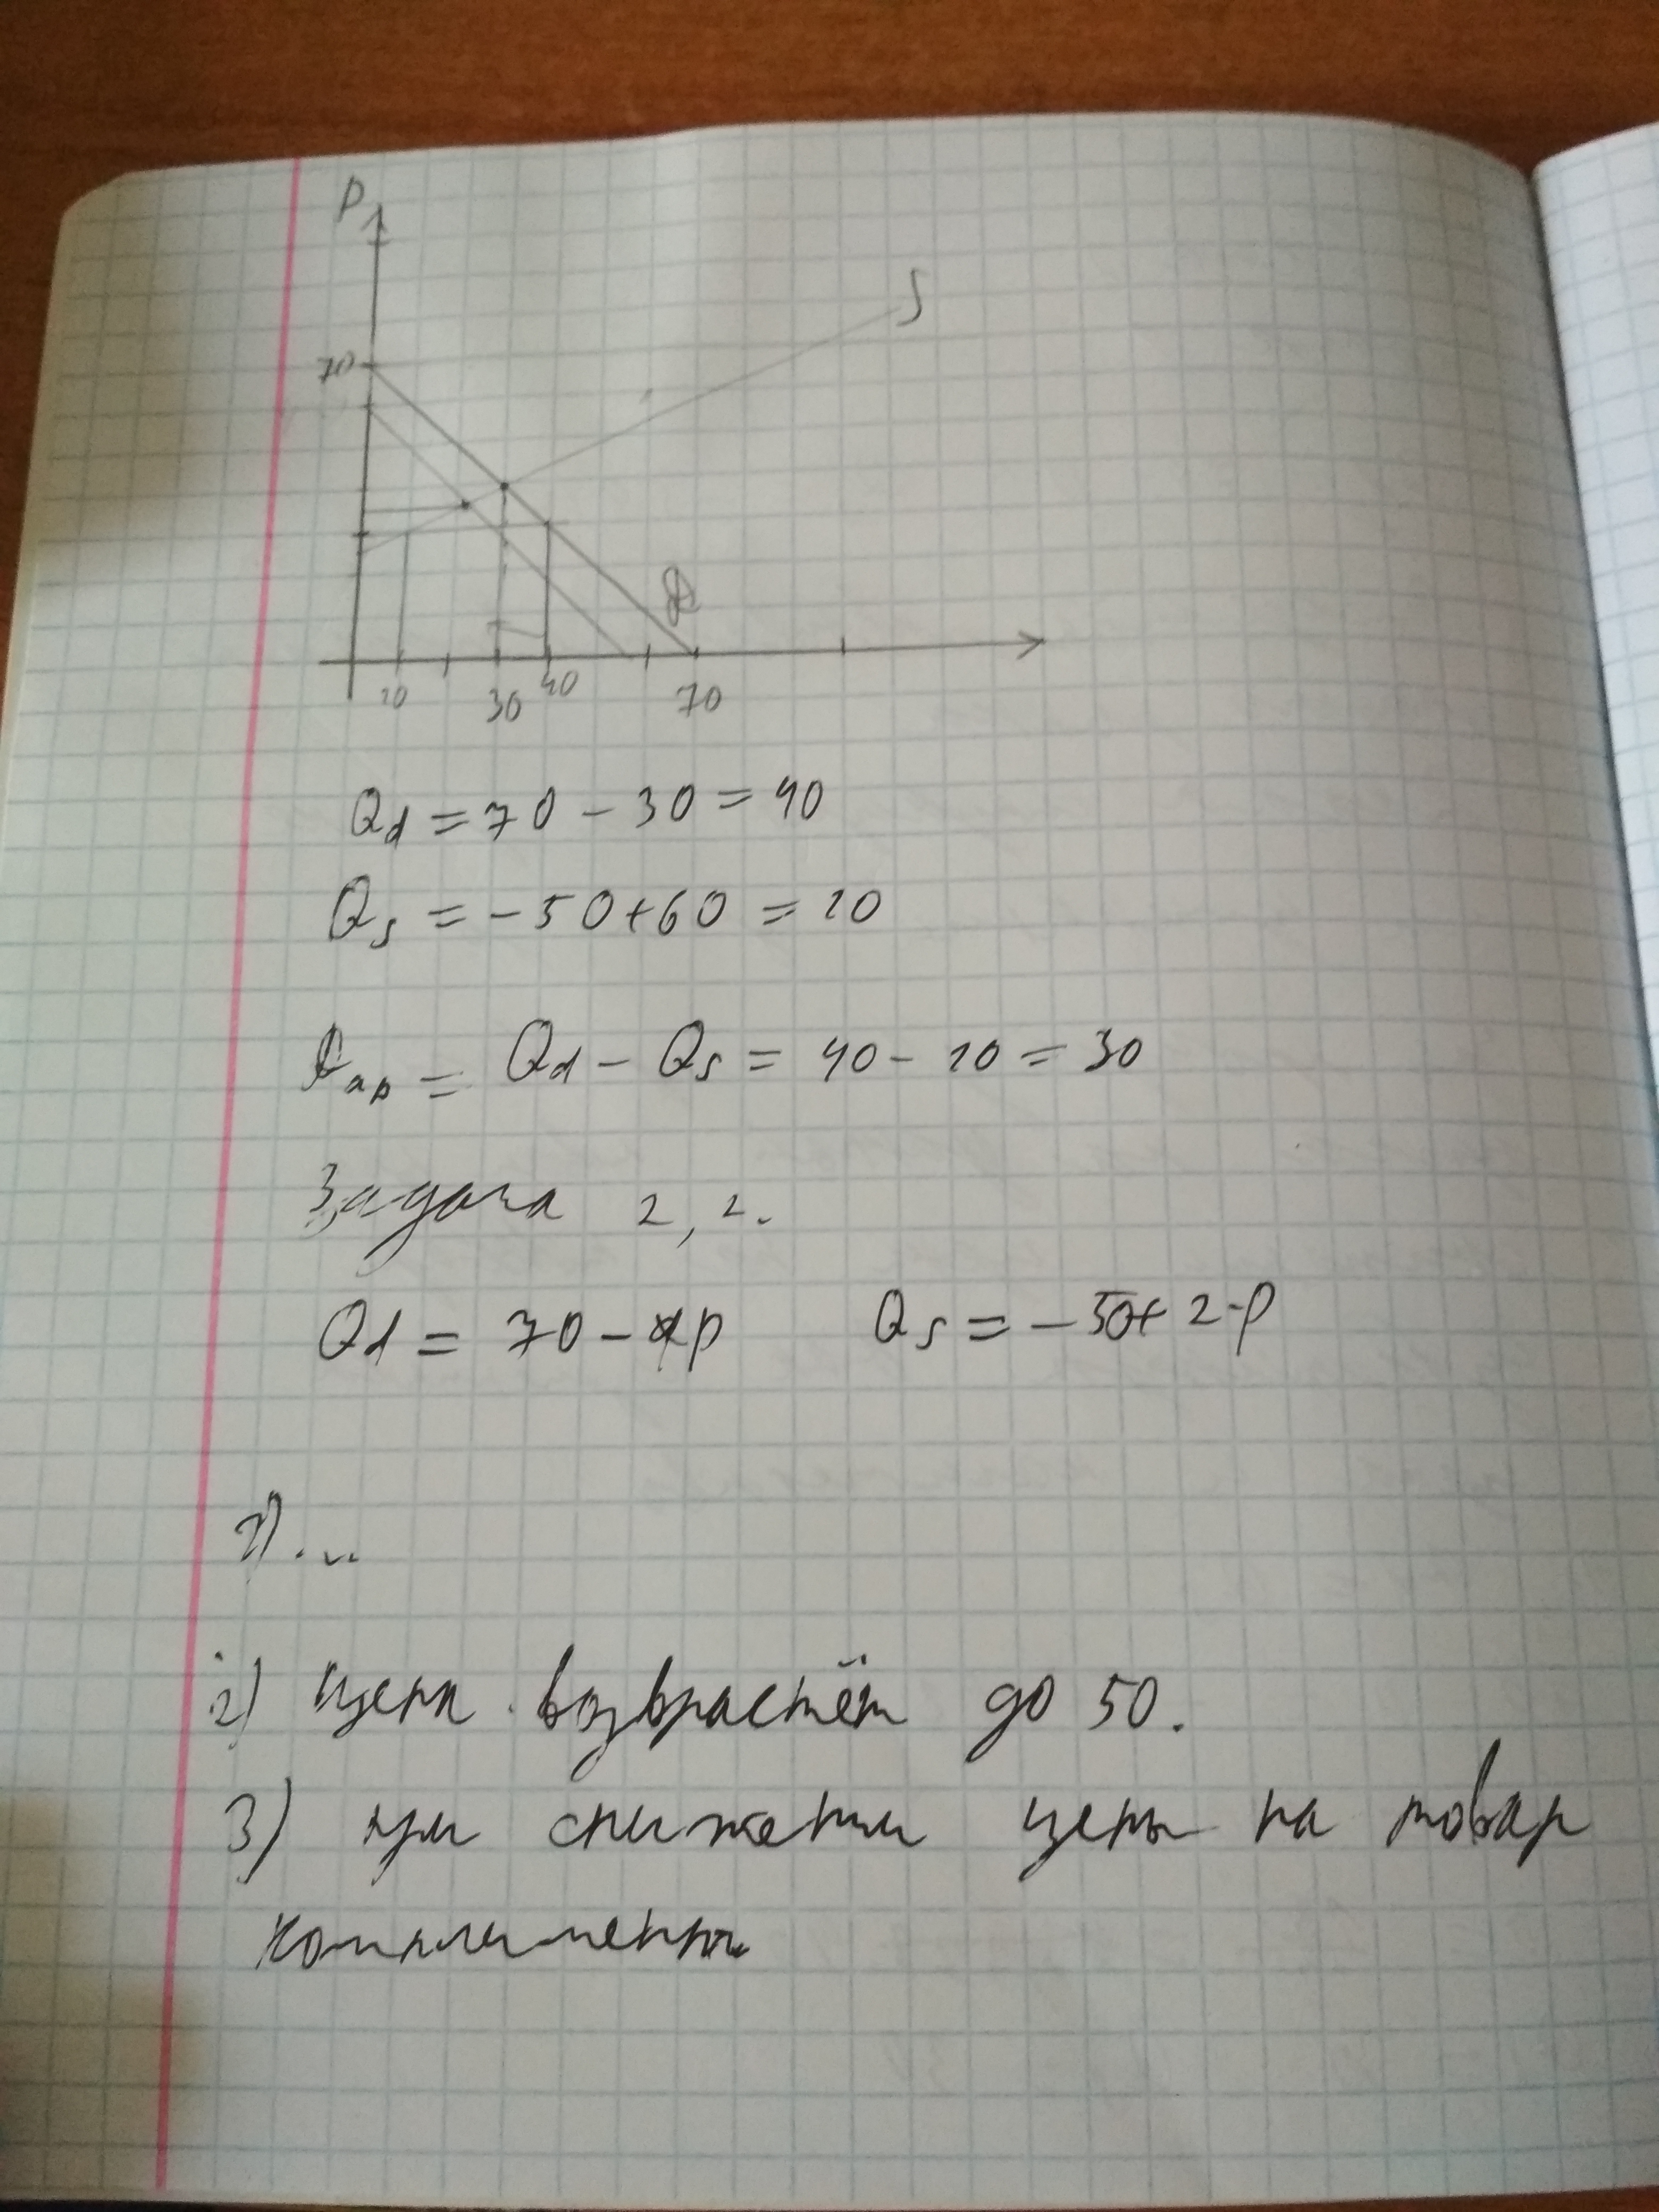 P
S
70
D
10 30 40 70
Qd = 70 - 30 = 40
Qs = - 50 + 60 = 10
= Qd - Qs = 40 - 10 = 30
Задача 2,2.
Qd = 70 - p Qs = - 50 + 2·p
1) ...
2) цена возврастёт до 50.
3) при снижении цены на товар
комплименты